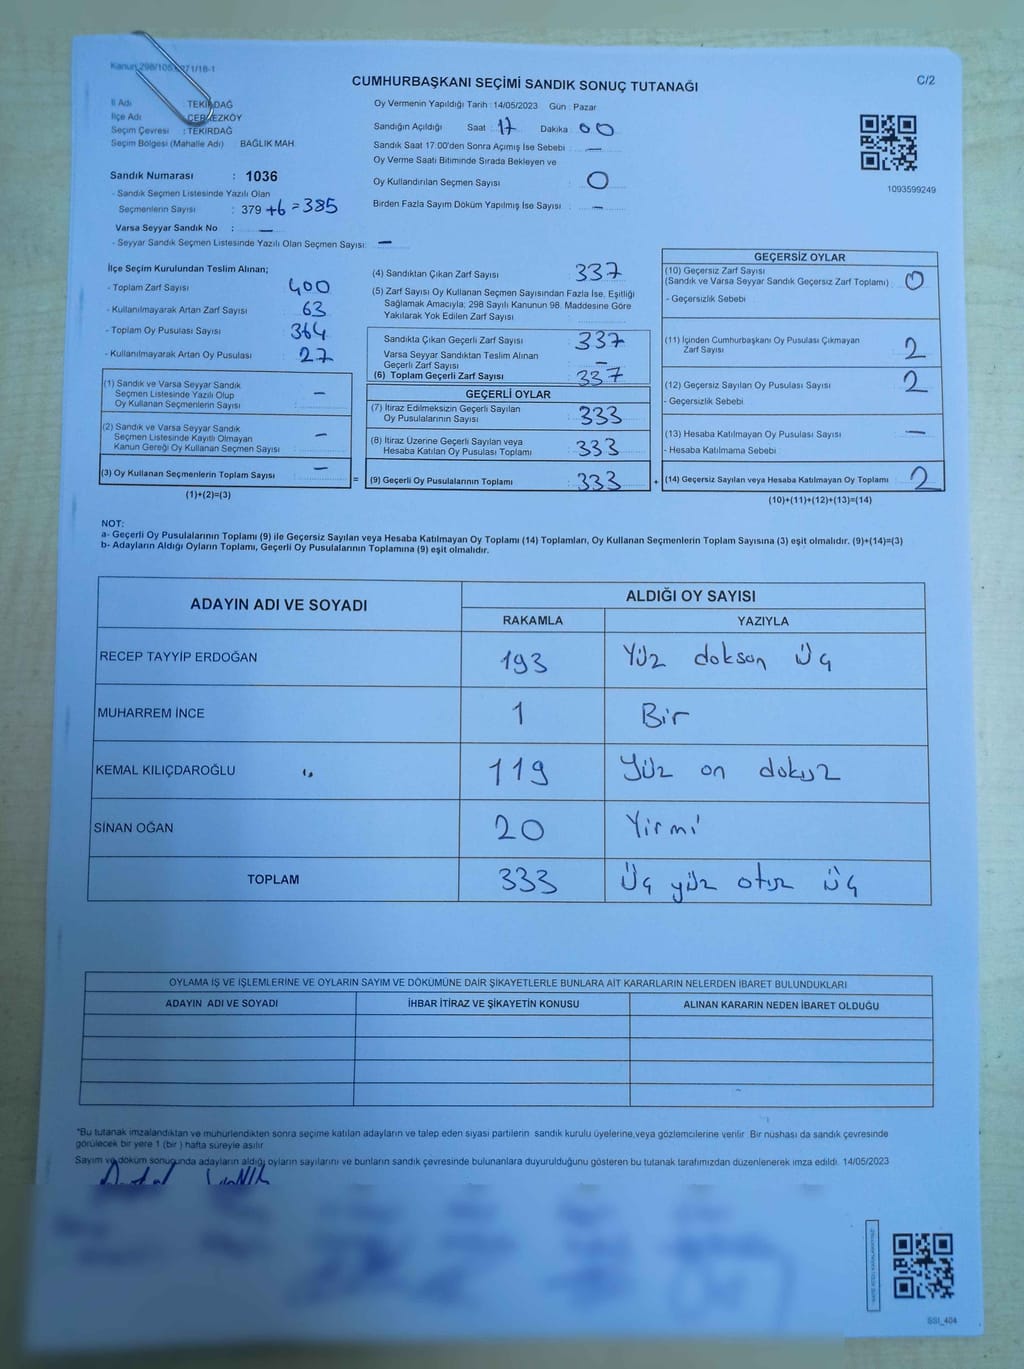 Kanun 298/105,271/16-1
CUMHURBAŞKANI SEÇİMİ SANDIK SONUÇ TUTANAĞI
C/2
İl Adı : TEKİRDAĞ
İlçe Adı : ÇERKEZKÖY
Seçim Çevresi : TEKİRDAĞ
Seçim Bölgesi (Mahalle Adı) BAĞLIK MAH
Sandık Numarası : 1036
- Sandık Seçmen Listesinde Yazılı Olan
Seçmenlerin Sayısı : 379 +6 = 385
Varsa Seyyar Sandık No : —
- Seyyar Sandık Seçmen Listesinde Yazılı Olan Seçmen Sayısı: —
Oy Vermenin Yapıldığı Tarih : 14/05/2023 Gün : Pazar
Sandığın Açıldığı Saat : 17 Dakika : 00
Sandık Saat 17.00'den Sonra Açımış İse Sebebi : —
Oy Verme Saati Bitiminde Sırada Bekleyen ve
Oy Kullandırılan Seçmen Sayısı : 0
Birden Fazla Sayım Döküm Yapılmış İse Sayısı : —
1093599249
İlçe Seçim Kurulundan Teslim Alınan;
- Toplam Zarf Sayısı : 400
- Kullanılmayarak Artan Zarf Sayısı : 63
- Toplam Oy Pusulası Sayısı : 364
- Kullanılmayarak Artan Oy Pusulası : 27
(1) Sandık ve Varsa Seyyar Sandık
Seçmen Listesinde Yazılı Olup
Oy Kullanan Seçmenlerin Sayısı : —
(2) Sandık ve Varsa Seyyar Sandık
Seçmen Listesinde Kayıtlı Olmayan
Kanun Gereği Oy Kullanan Seçmen Sayısı : —
(3) Oy Kullanan Seçmenlerin Toplam Sayısı : —
(1)+(2)=(3)
(4) Sandıktan Çıkan Zarf Sayısı : 337
(5) Zarf Sayısı Oy Kullanan Seçmen Sayısından Fazla İse, Eşitliği
Sağlamak Amacıyla; 298 Sayılı Kanunun 98. Maddesine Göre
Yakılarak Yok Edilen Zarf Sayısı :
Sandıkta Çıkan Geçerli Zarf Sayısı : 337
Varsa Seyyar Sandıktan Teslim Alınan
Geçerli Zarf Sayısı : —
(6) Toplam Geçerli Zarf Sayısı : 337
GEÇERLİ OYLAR
(7) İtiraz Edilmeksizin Geçerli Sayılan
Oy Pusulalarının Sayısı : 333
(8) İtiraz Üzerine Geçerli Sayılan veya
Hesaba Katılan Oy Pusulası Toplamı : 333
= (9) Geçerli Oy Pusulalarının Toplamı : 333 +
GEÇERSİZ OYLAR
(10) Geçersiz Zarf Sayısı
(Sandık ve Varsa Seyyar Sandık Geçersiz Zarf Toplamı) : 0
- Geçersizlik Sebebi :
(11) İçinden Cumhurbaşkanı Oy Pusulası Çıkmayan
Zarf Sayısı : 2
(12) Geçersiz Sayılan Oy Pusulası Sayısı : 2
- Geçersizlik Sebebi :
(13) Hesaba Katılmayan Oy Pusulası Sayısı : —
- Hesaba Katılmama Sebebi :
(14) Geçersiz Sayılan veya Hesaba Katılmayan Oy Toplamı : 2
(10)+(11)+(12)+(13)=(14)
NOT:
a- Geçerli Oy Pusulalarının Toplamı (9) ile Geçersiz Sayılan veya Hesaba Katılmayan Oy Toplamı (14) Toplamları, Oy Kullanan Seçmenlerin Toplam Sayısına (3) eşit olmalıdır. (9)+(14)=(3)
b- Adayların Aldığı Oyların Toplamı, Geçerli Oy Pusulalarının Toplamına (9) eşit olmalıdır.
ADAYIN ADI VE SOYADI ALDIĞI OY SAYISI
RAKAMLA YAZIYLA
RECEP TAYYİP ERDOĞAN 193 Yüz doksan üç
MUHARREM İNCE 1 Bir
KEMAL KILIÇDAROĞLU 119 Yüz on dokuz
SİNAN OĞAN 20 Yirmi
TOPLAM 333 Üç yüz otuz üç
OYLAMA İŞ VE İŞLEMLERİNE VE OYLARIN SAYIM VE DÖKÜMÜNE DAİR ŞİKAYETLERLE BUNLARA AİT KARARLARIN NELERDEN İBARET BULUNDUKLARI
ADAYIN ADI VE SOYADI İHBAR İTİRAZ VE ŞİKAYETİN KONUSU ALINAN KARARIN NEDEN İBARET OLDUĞU
*Bu tutanak imzalandıktan ve mühürlendikten sonra seçime katılan adayların ve talep eden siyasi partilerin sandık kurulu üyelerine,veya gözlemcilerine verilir. Bir nüshası da sandık çevresinde
görülecek bir yere 1 (bir ) hafta süreyle asılır
Sayım ve döküm sonucunda adayların aldığı oyların sayılarını ve bunların sandık çevresinde bulunanlara duyurulduğunu gösteren bu tutanak tarafımızdan düzenlenerek imza edildi. 14/05/2023
SSI_404